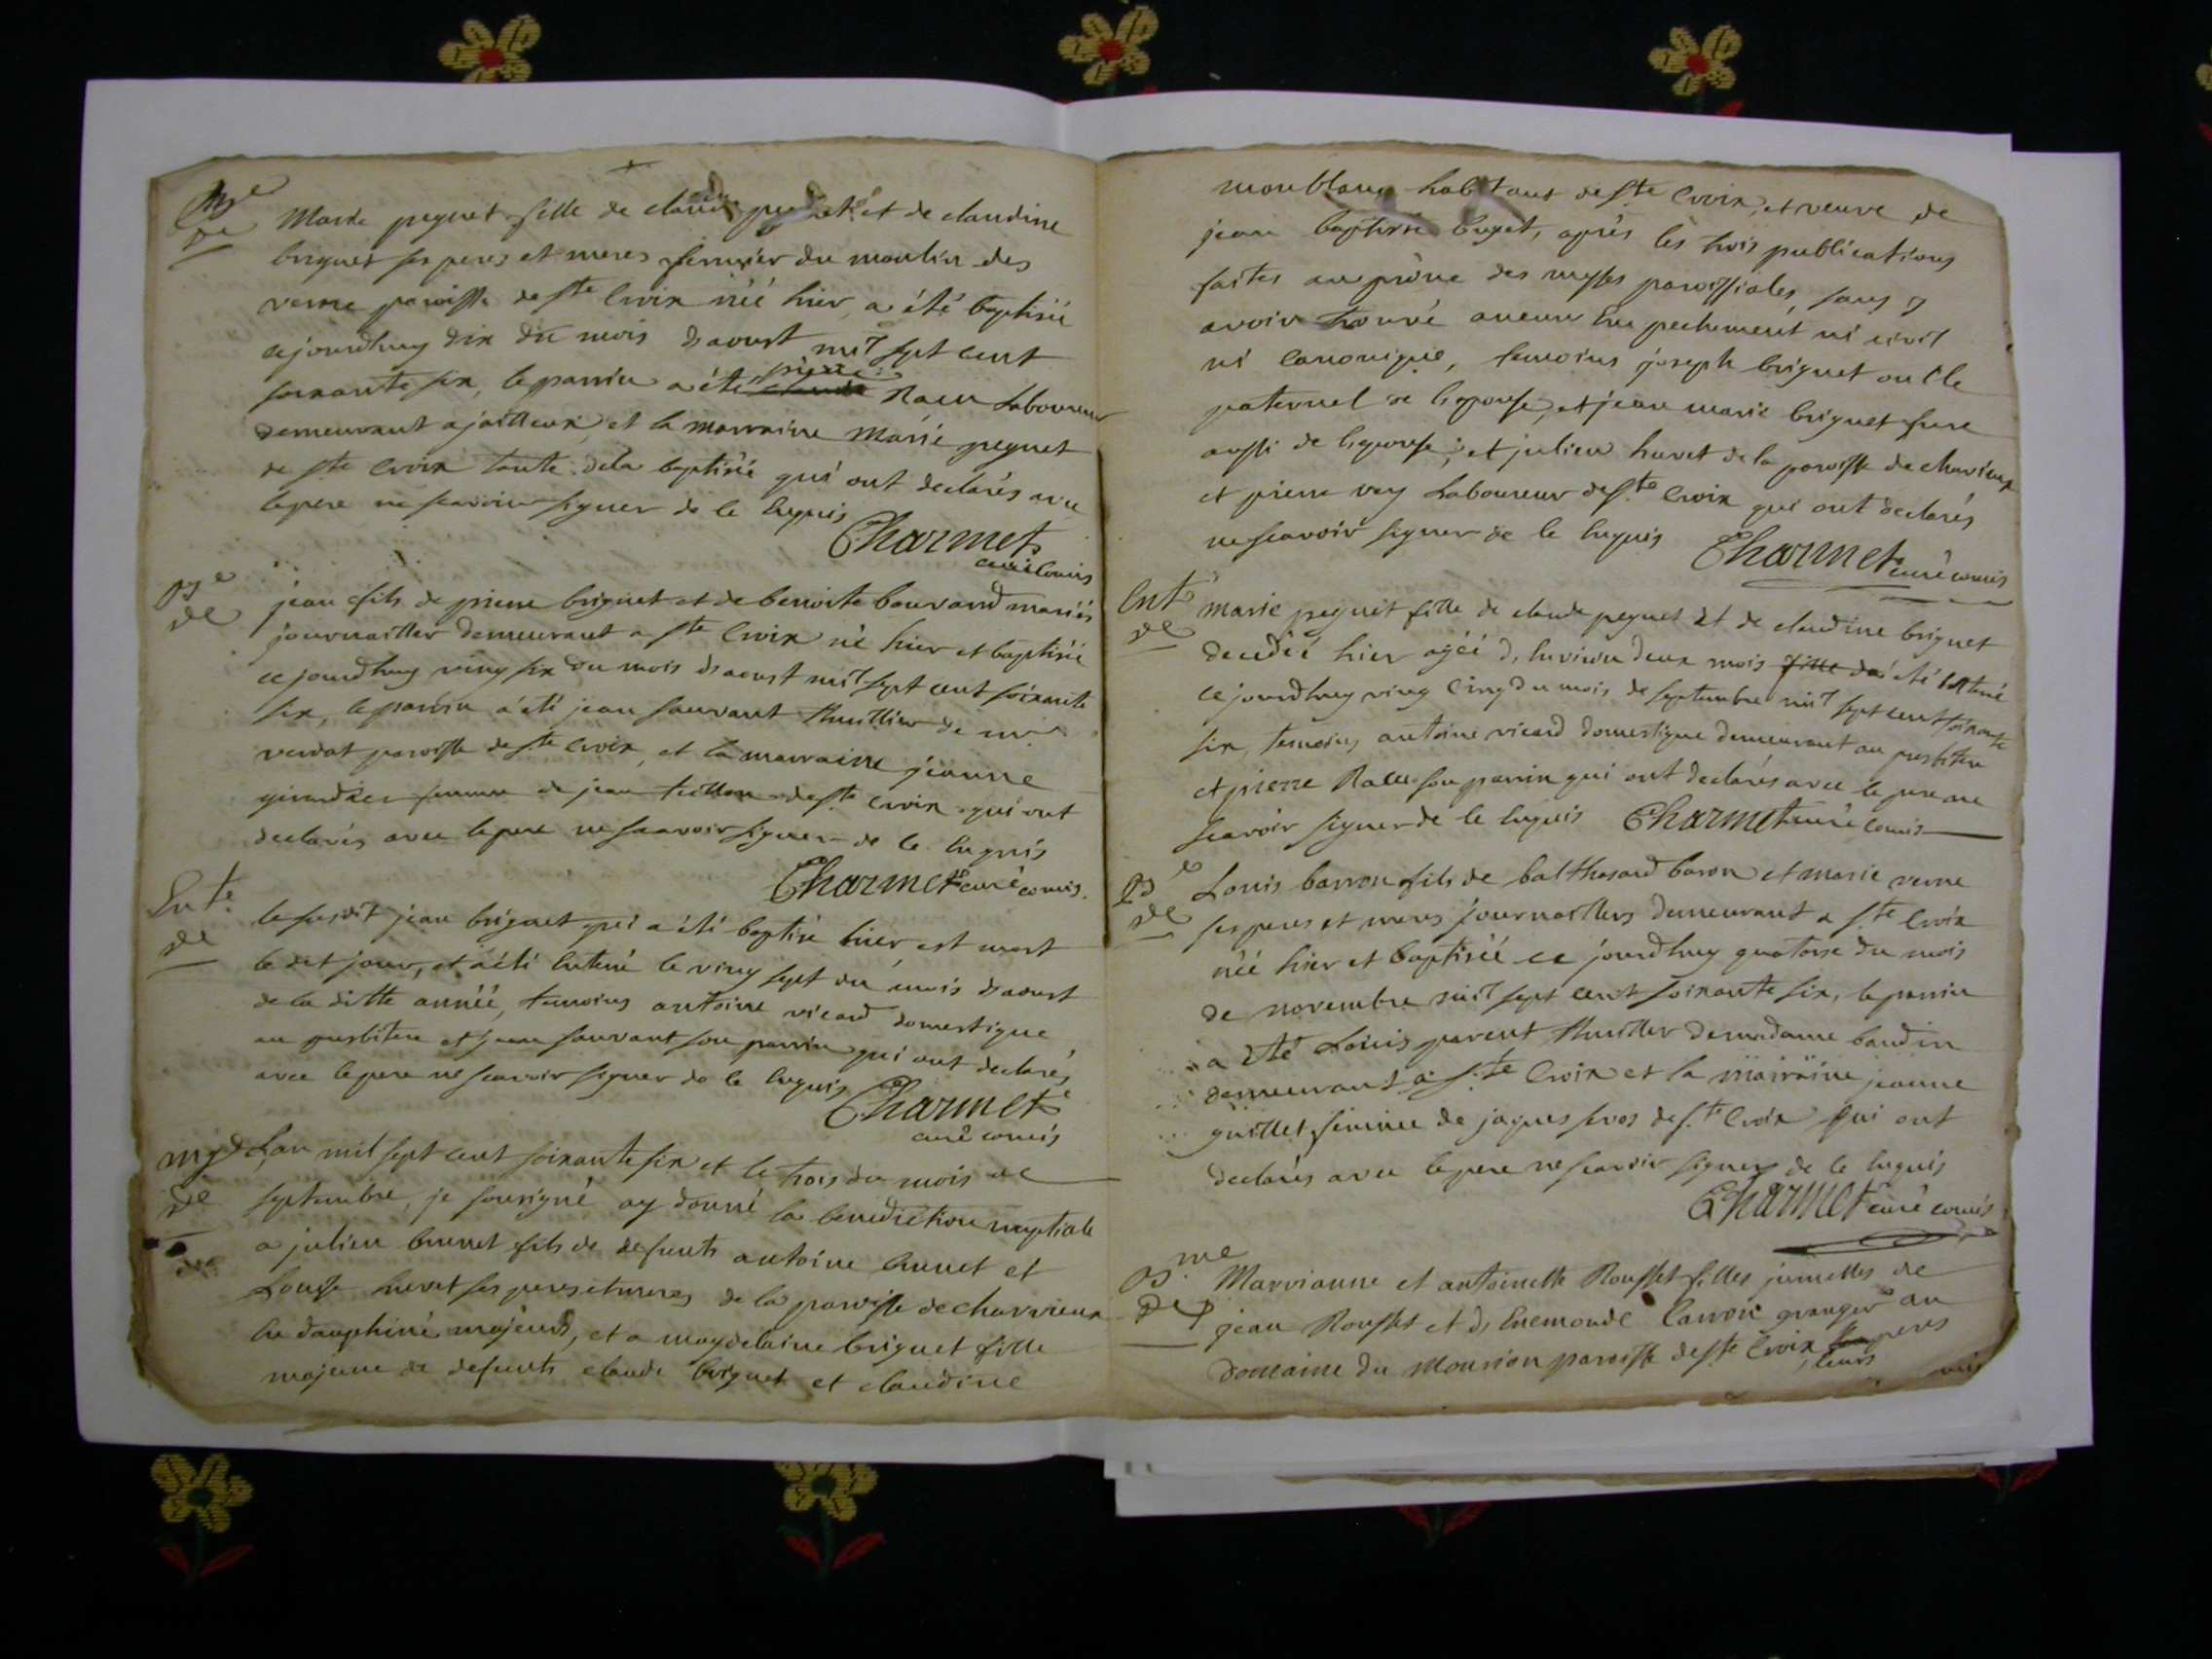 Marie peguet fille de claude peguet et de claudine
briguet ses peres et meres fermier du moulin des
verne paroisse de ste Croix néé hier, a été baptiséé
cejourdhuy dix du mois daoust mil sept cent
soixante six, le parrin a été pierre Racu Laboureur
demeurant a jailleux et la marraine Marie peguet
de ste Croix tante dela baptiséé qui ont declarés avec
lepere ne scavoir signer de ce enquis
Charmet
curé comis
Be
de
jean fils de pierre briguet et de benoite bouvand mariés
journaillier demeurant a ste Croix né hier et baptiséé
cejourdhuy ving six du mois daoust mil sept cent soixante
six, le parrin a été jean sauvant thuillier de
verdat paroisse de ste Croix, et la marraine jeanne
femme de jean de ste Croix qui ont
declarés avec lepere ne scavoir signer de ce enquis
Charmet curé comis.
Ente
de
le susdit jean briguet qui a été baptisé hier, est mort
le dit jour, et a été enterré le ving sept du mois daoust
de la ditte annéé, temoins antoine vicard domestique
au presbitere et jean sauvant son parrin qui ont declarés
avec lepere ne scavoir signer de ce enquis
Charmet
curé comis
mge
de
Lan mil sept cent soixante six et le trois du mois de
septembre, je sousigné ay donné la benediction nuptiale
a julien brunet fils de defunts antoine brunet et
Louise huvet ses peres et meres de la paroisse de charvieux
en dauphiné majeurs, et a magdelaine briguet fille
majeure de defunts claude briguet et claudine
monblanc habitant de ste Croix, et veuve de
jean baptiste buget, après les trois publications
faites au prône des messes paroissiales, sans y
avoir trouvé aucun Empechement ni civil
ni Canonique, temoins joseph briguet oncle
paternel de lepouse, et jean marie briguet frere
aussi de lepouse, et julien huvet de la paroisse de charvieux
et pierre vey Laboureur de ste Croix qui ont declarés
ne scavoir signer de ce enquis
Charmet curé comis
Ent
de
marie peguet fille de claude peguet et de claudine briguet
decedéé hier agéé d'environ deux mois fille da été enterré
ce jourdhuy ving cinq du mois de septembre mil sept cent soixante
six, temoins antoine vicard domestique demeurant au presbitere
et pierre Racu son parrin qui ont declarés avec le pere ne
scavoir signer de ce enquis Charmet curé comis
Be
de
Louis barron fils de balthasard baron et marie verne
ses peres et meres journailliers demeurant a ste Croix
néé hier et baptiséé ce jourdhuy quatorse du mois
de novembre mil sept cent soixante six, le parrin
a été Louis parent thuillier de madame baudin
demeurant a ste Croix et la marraine jeanne
guillet femme de jaques de ste Croix qui ont
declarés avec lepere ne scavoir signer de ce enquis
Charmet curé comis
Bme
de
Marrianne et antoinette Rousset filles jumelles de
jean Rousset et d'Enemonde Carron granger au
domaine du Mourion paroisse de ste Croix peres
leurs